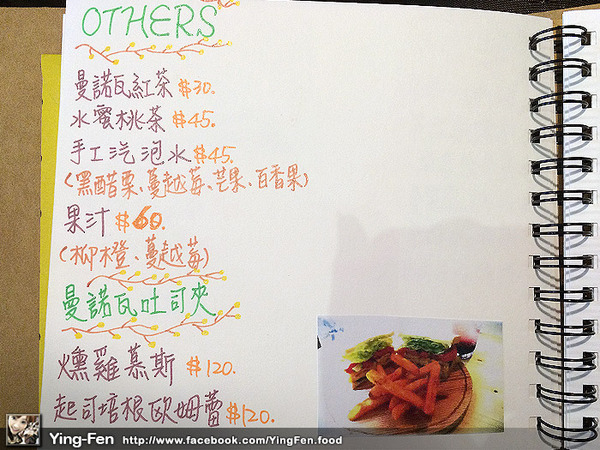 OTHERS
曼諾瓦紅茶 $30.
水蜜桃茶 $45.
手工汽泡水 $45.
(黑醋栗、蔓越莓、芒果、百香果)
果汁 $60.
(柳橙、蔓越莓)
曼諾瓦吐司夾
燻雞慕斯 $120.
起司培根歐姆蕾 $120.
Ying-Fen http://www.facebook.com/YingFen.food